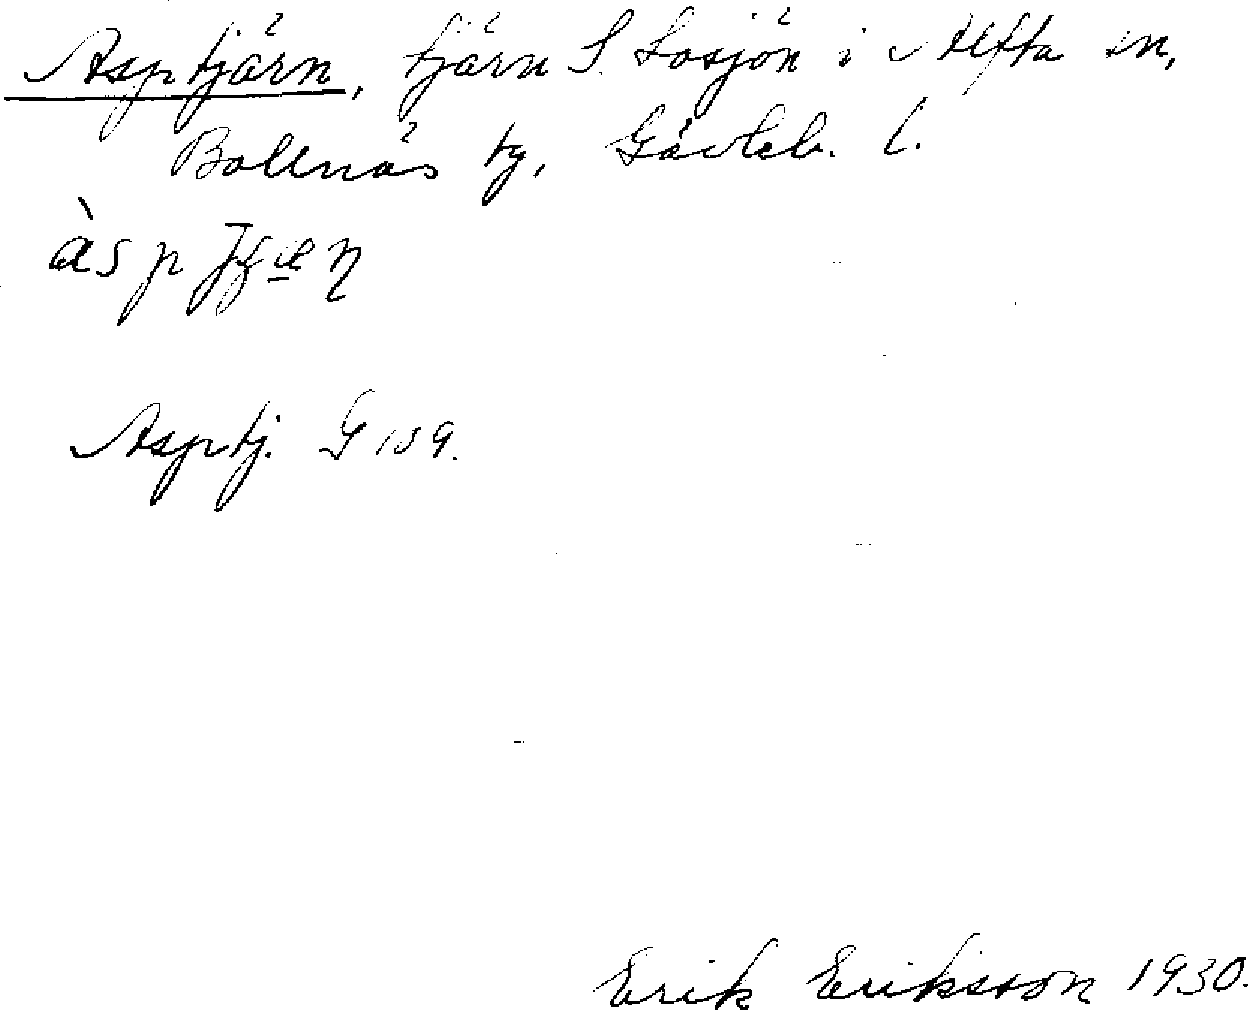 Asptjärn, tjärn S. Losjön i Alfta sn,
Bollnäs tg, Gävleb. l.
Asptj. G 159.
Erik Eriksson 1930.